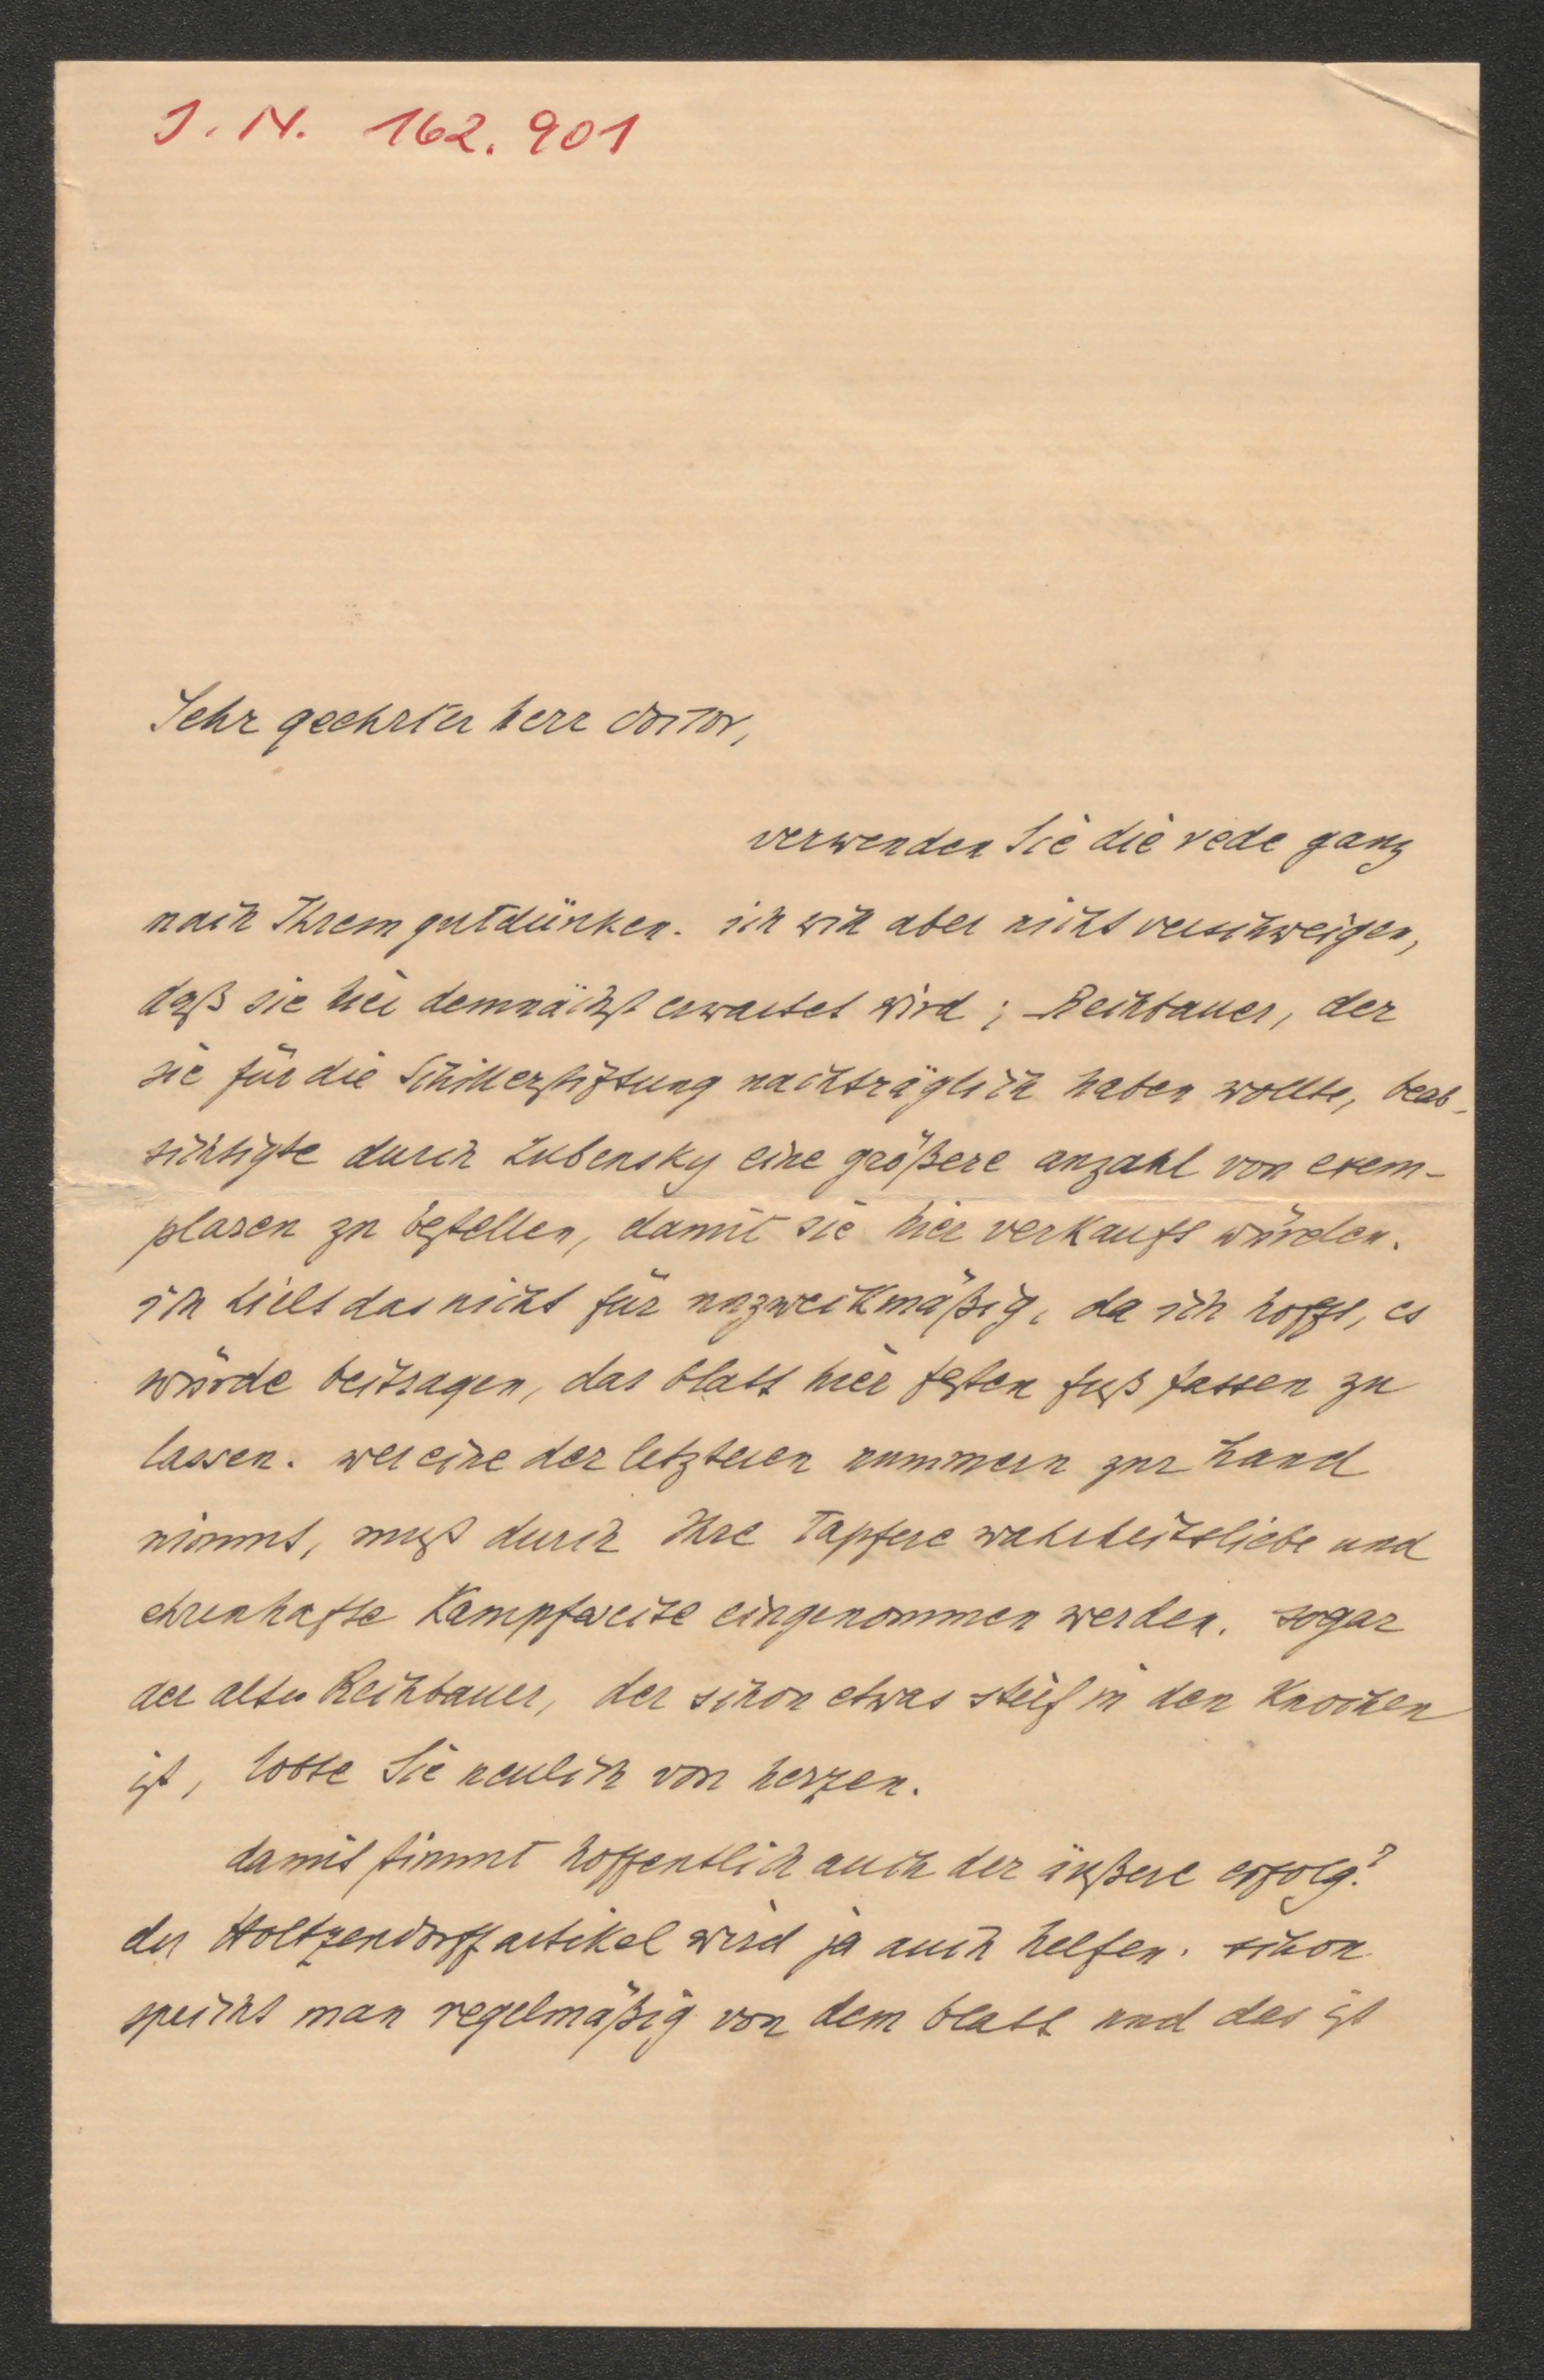 J. N. 162.901
Sehr geehrter herr doctor,
verwenden Sie die rede ganz
nach Ihrem gutdünken. ich will aber nicht verschweigen,
daß sie hier demnächst erwartet wird; Rechbauer, der
sie für die Schillerstiftung nachträglich haben wollte, beab-
sichtigte durch Lubensky eine größere anzahl von exem-
plaren zu bestellen, damit sie hier verkauft würden.
ich hielt das nicht für unzweckmäßig, da ich hoffe, es
würde beitragen, das blatt hier festen fuß fassen zu
lassen. wer eine der letzteren nummern zur hand
nimmt, muß durch Ihre tapfere wahrheitsliebe und
ehrenhafte Kampfweise eingenommen werden. sogar
der alte Rechbauer, der schon etwas steif in den Knochen
ist, lobte Sie neulich von herzen.
damit stimmt hoffentlich auch der äußere erfolg?
der Holtzendorffartikel wird ja auch helfen. schon
spricht man regelmäßig von dem blatt und das ist